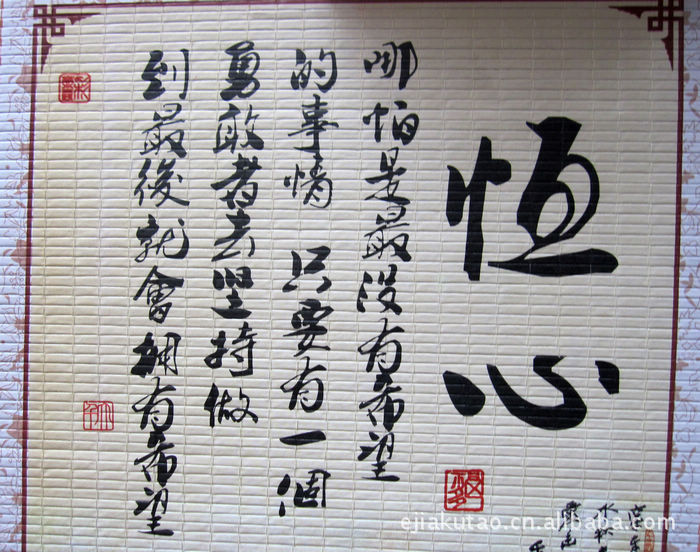 恒心
哪怕是最没有希望
的事情 只要有一個
勇敢者去坚持做
到最後就會拥有希望
ejiakutao.cn.alibaba.com